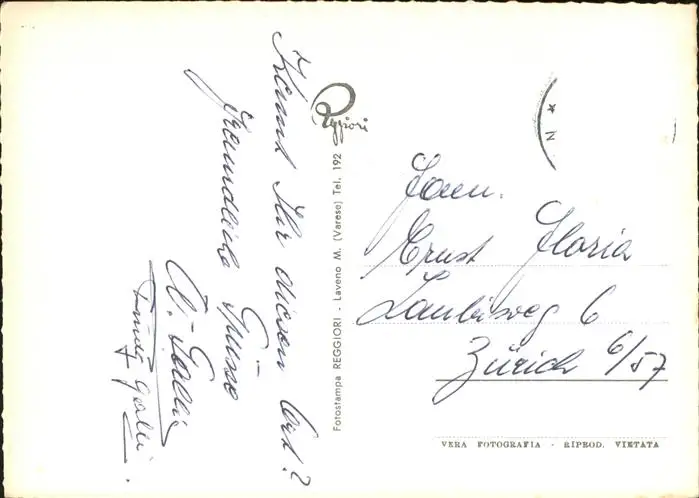 Kennt Ihr diesen Ort?
Freundliche Grüsse
W. Galli
Trudi Galli
Reggiori
Fotostampa REGGIORI - Laveno M. (Varese) Tel. 192
Fam.
Ernst Gloria
6
Zürich 6/57
VERA FOTOGRAFIA - RIPROD. VIETATA
N *